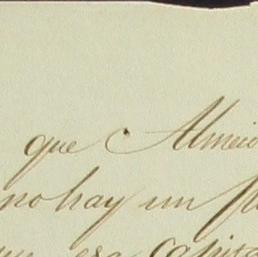 que Almei
no hay un
esa capita